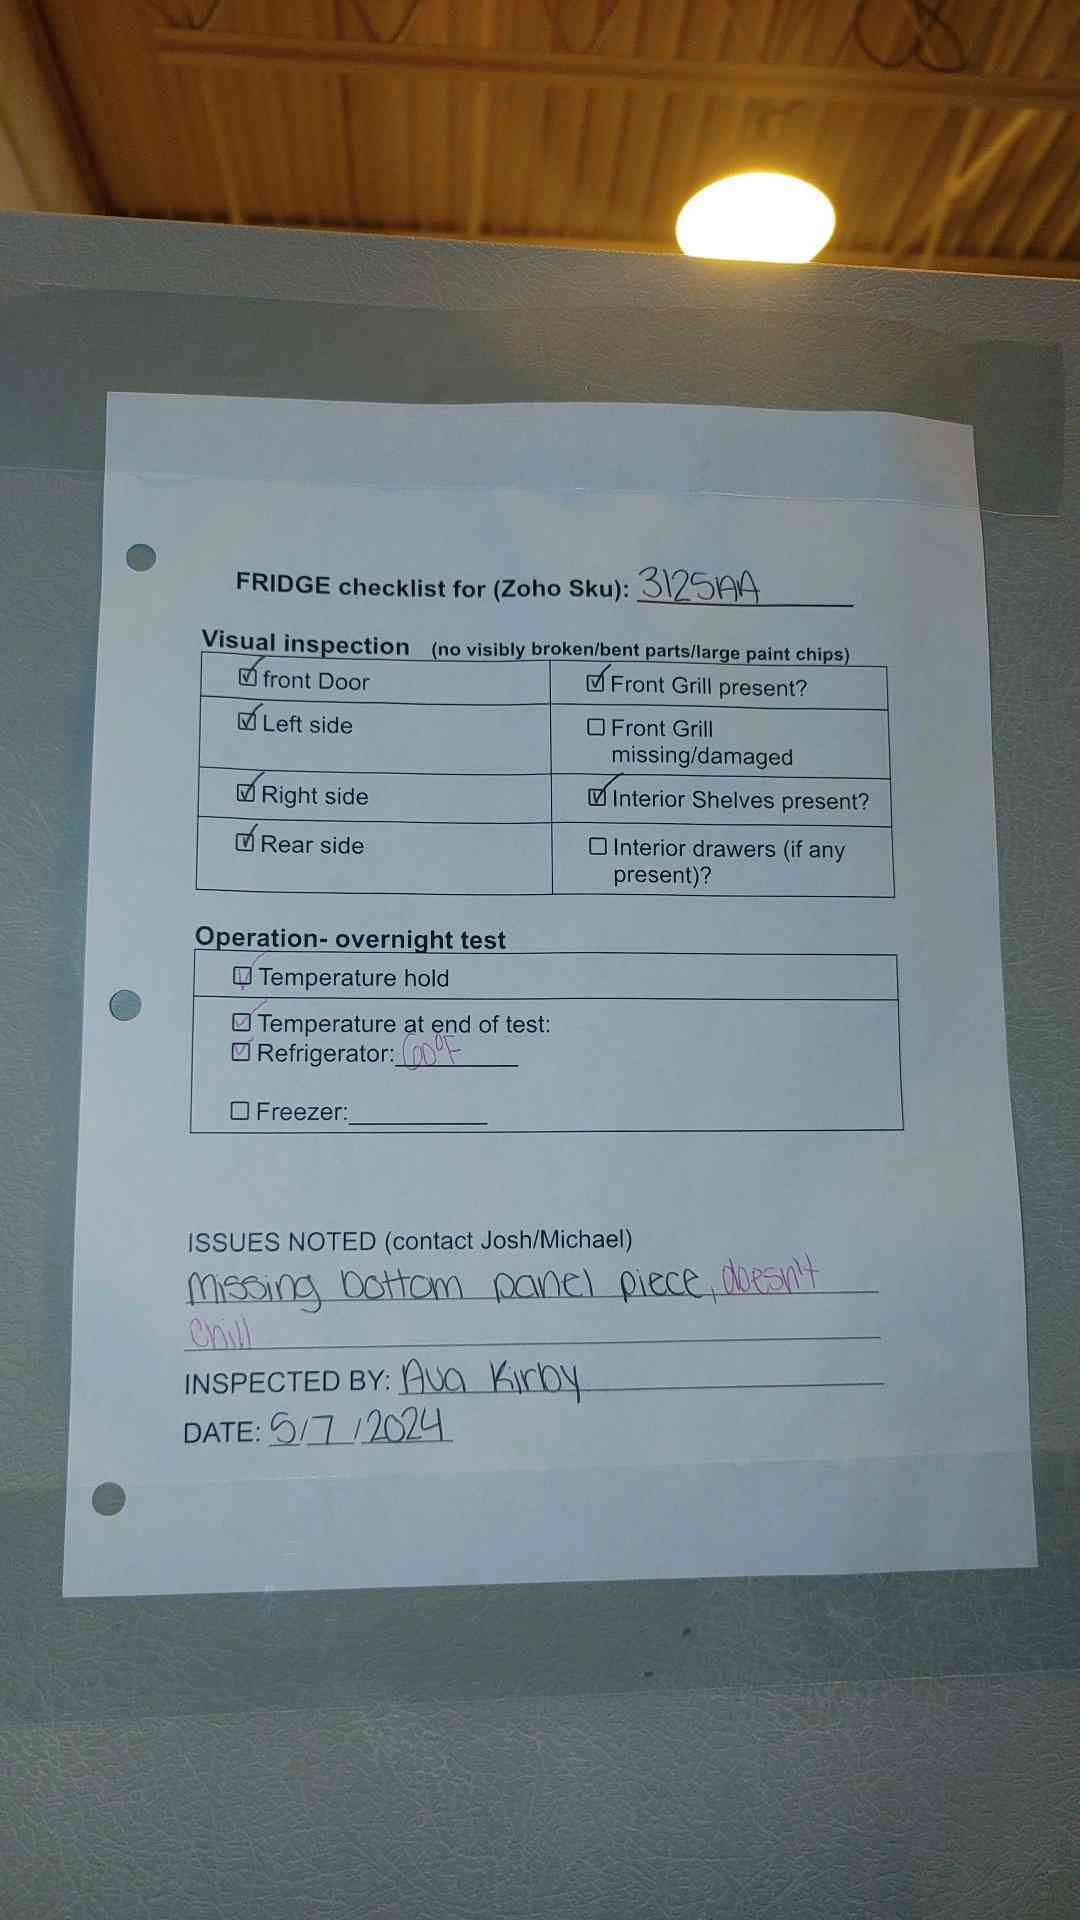 FRIDGE checklist for (Zoho Sku): 3125AA
Visual inspection (no visibly broken/bent parts/large paint chips)
☑ front Door
☑ Front Grill present?
☑ Left side
☐ Front Grill
missing/damaged
☑ Right side
☑ Interior Shelves present?
☑ Rear side
☐ Interior drawers (if any
present)?
Operation- overnight test
☑ Temperature hold
☑ Temperature at end of test:
☑ Refrigerator: 60°F
☐ Freezer:
ISSUES NOTED (contact Josh/Michael)
Missing bottom panel piece, doesn't
chill
INSPECTED BY: Ava Kirby
DATE: 5/7/2024